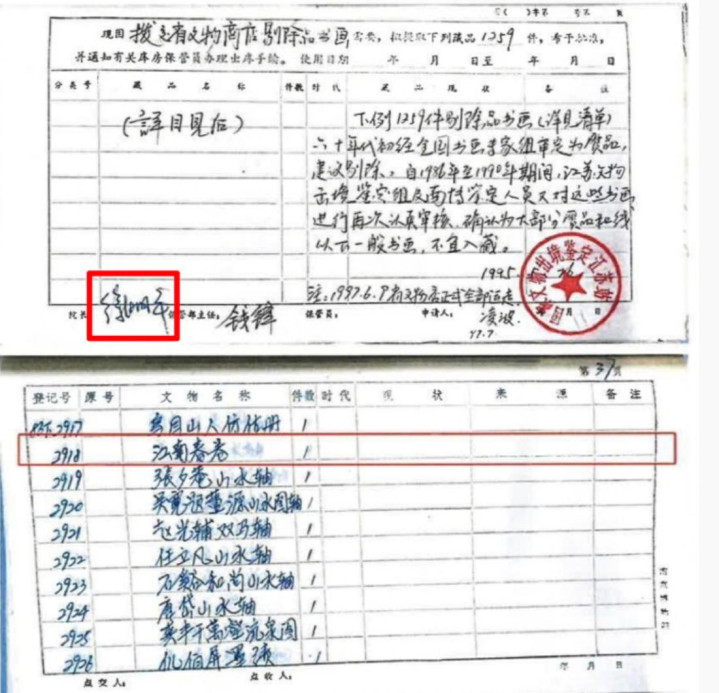 现因 拨交省文物商店剔除品书画 需要,拟提取下列藏品 1259 件,希予批准。
并通知有关库房保管员办理出库手续。 使用日期 年 月 日至 年 月 日
分类号 藏品名称 件数 时代 藏品现状 备注
(詳目見后)
下例1259件剔除品书画(详见清单)
六十年代初经全国书画专家组审定为赝品,
建议剔除。自1986年至1990年期间,江苏文物
出境鉴定组及南博鉴定人员又对这些书画
进行再次认真审核,确认为大部分赝品和线
以下一般书画,不宜入藏。
1995.
注:1997.6.9
院长 保管部主任: 钱锋 保管员: 申请人: 凌波 月 日
97.7.
国家文物出境鉴定江苏站
第 37 页
登记号 原号 文物名称 件数 时代 现状 来源 备注
2917 山人仿 册 1
2918 江南春卷 1
2919 張夕庵山水轴 1
2920 山水图轴 1
2921 双马轴 1
2922 任立凡山水轴 1
2923 和尚山水轴 1
2924 唐岱山水轴 1
2925 流泉图 1
2926 1
点交人: 点收人: 年 月 日